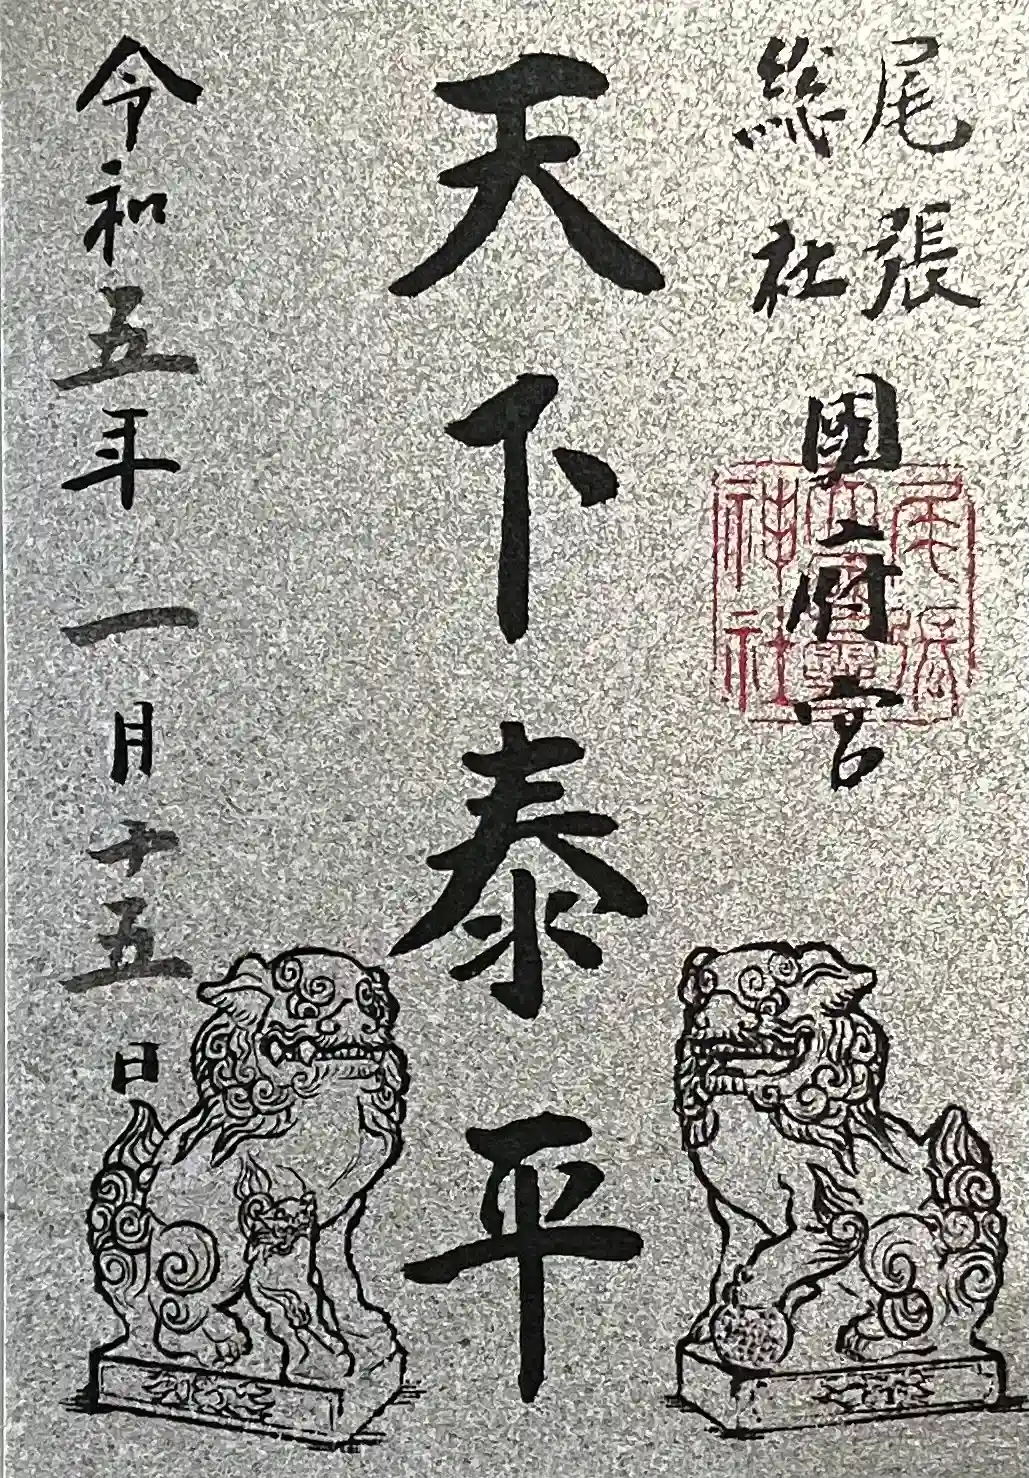 尾張
総社
國府宮
天下泰平
令和五年一月十五日
尾張
神社